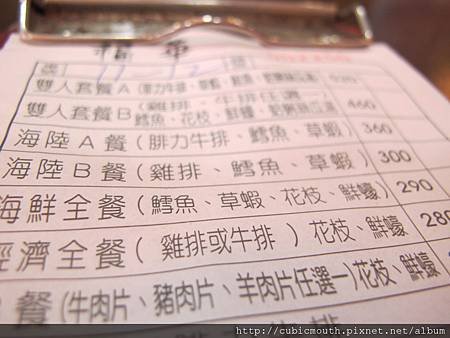 雙人套餐A(菲力牛排、草蝦、鱈魚、
雙人套餐B(雞排、牛排任選 460
鱈魚、花枝、鮮蠔、
海陸A餐(腓力牛排、鱈魚、草蝦) 360
海陸B餐(雞排、鱈魚、草蝦) 300
海鮮全餐(鱈魚、草蝦、花枝、鮮蠔) 290
經濟全餐(雞排或牛排)花枝、鮮蠔 280
餐(牛肉片、豬肉片、羊肉片任選一)花枝、鮮蠔
http://cubicmouth.pixnet.net/album